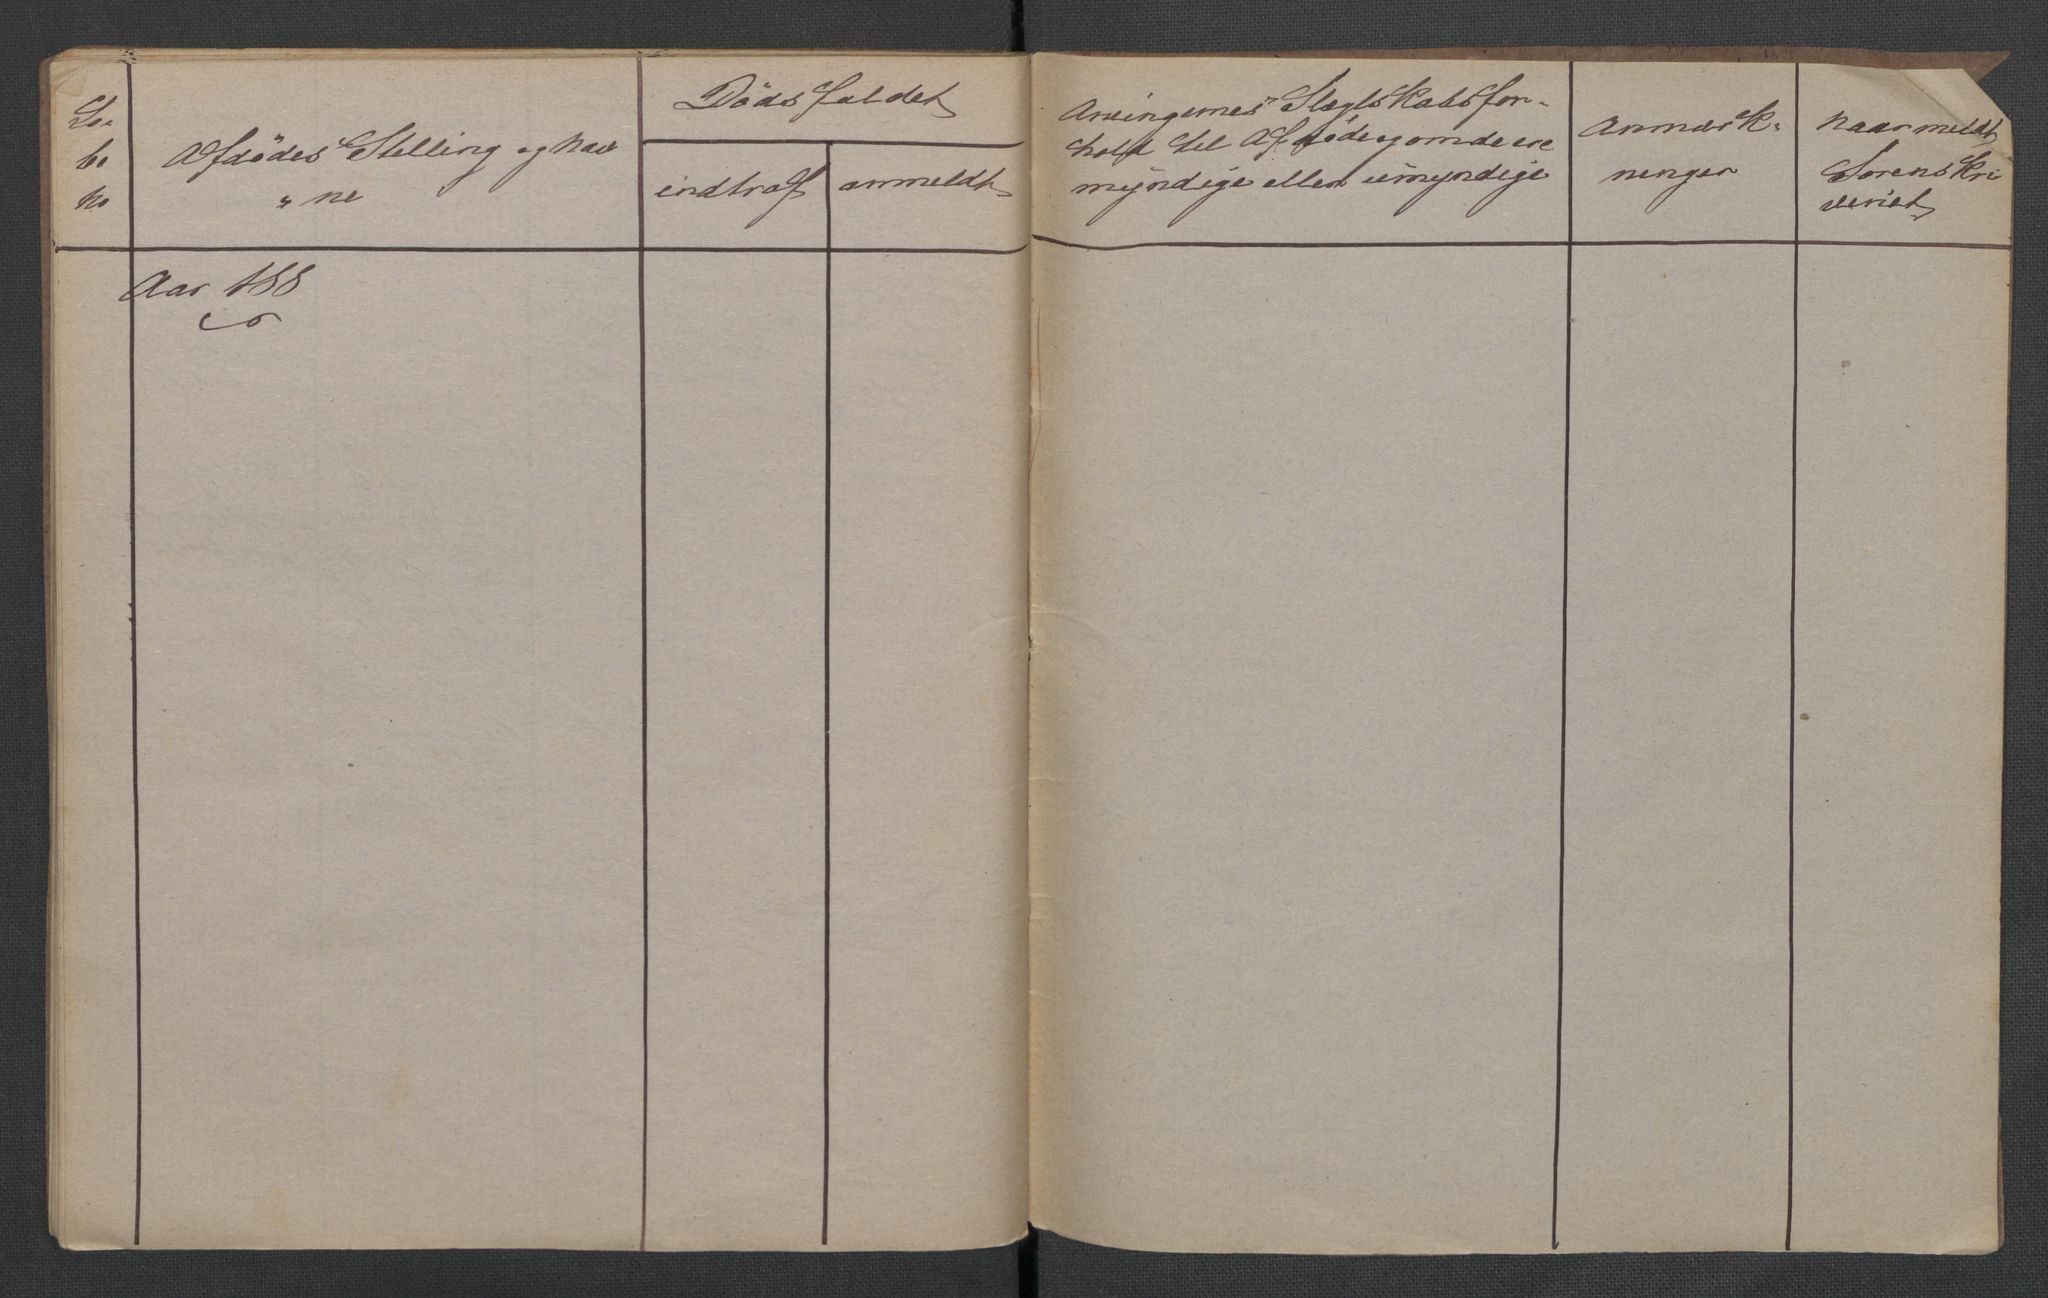 Lö-
be
No
Afdödes Stilling og Nav
„ ne
Dödsfaldet
indtraf
anmeldt
Arvingernes Slægtskabsfor-
hold til Afdöde og om de ere
myndige eller umyndige
Anmærk-
ninger
Naar meldt
Sorenskri
veriet
Aar 188